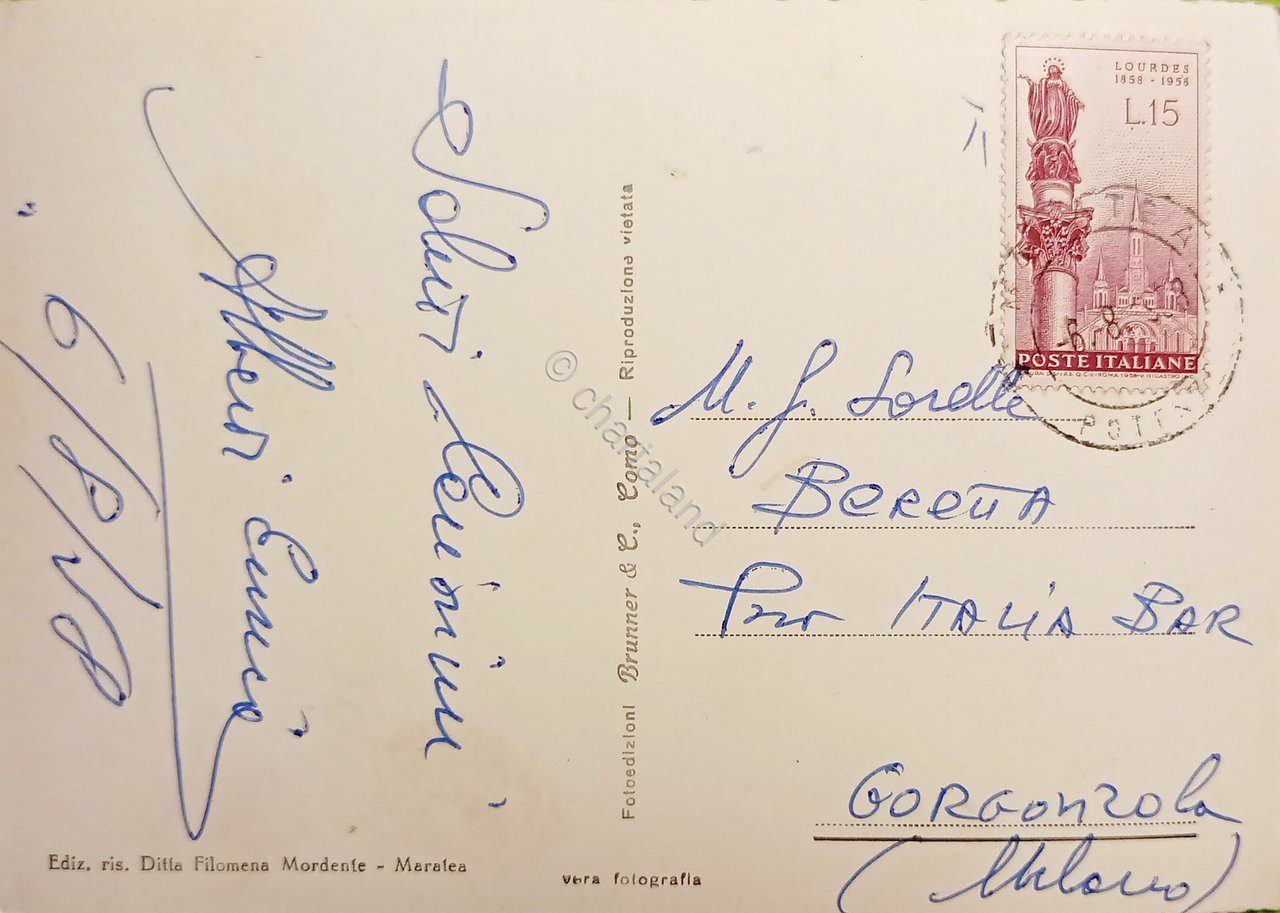 Saluti
Alberti Ennio
6/8/58
Ediz. ris. Ditta Filomena Mordente - Maratea
Fotoedizioni Brunner & C., Como — Riproduzione vietata
vera fotografia
© chartaland
LOURDES
1858 - 1958
L.15
POSTE ITALIANE
POTENZA
M. G. Sorelle
BERETTA
ITALIA BAR
GORGONZOLA
(Milano)